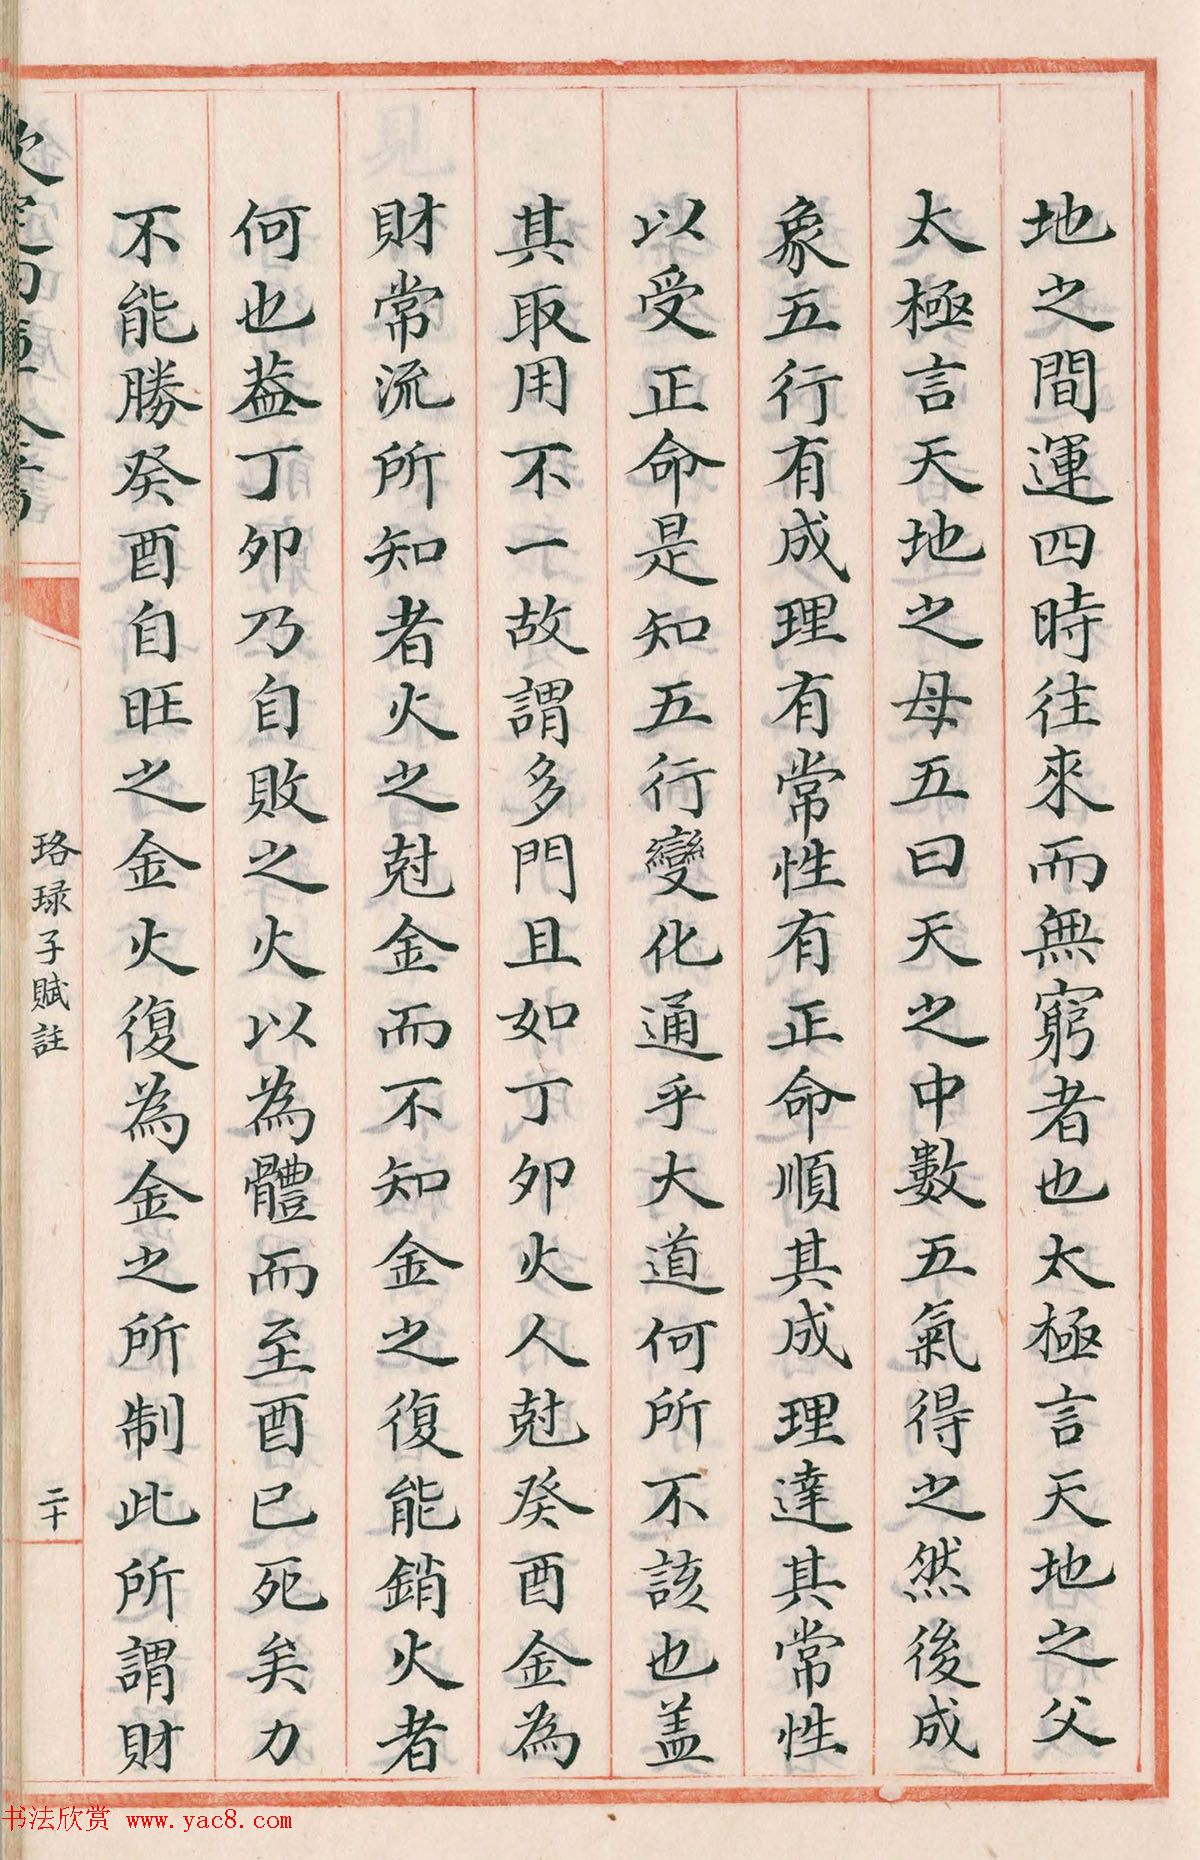 地之間運四時往來而無窮者也太極言天地之父
太極言天地之母五曰天之中數五氣得之然後成
象五行有成理有常性有正命順其成理達其常性
以受正命是知五行變化通乎大道何所不該也盖
其取用不一故謂多門且如丁卯火人尅癸酉金為
財常流所知者火之尅金而不知金之復能銷火者
何也葢丁卯乃自敗之火以為體而至酉已死矣力
不能勝癸酉自旺之金火復為金之所制此所謂財
欽定四庫全書
珞琭子賦註
二十
书法欣赏 www.yac8.com